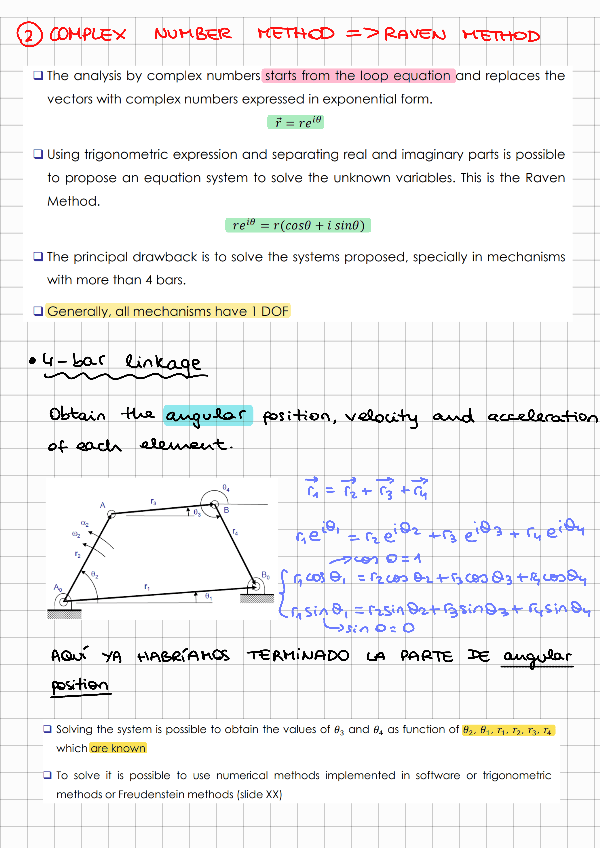 ② COMPLEX NUMBER METHOD => RAVEN METHOD
❑ The analysis by complex numbers starts from the loop equation and replaces the
vectors with complex numbers expressed in exponential form.
r⃗ = re^{iθ}
❑ Using trigonometric expression and separating real and imaginary parts is possible
to propose an equation system to solve the unknown variables. This is the Raven
Method.
re^{iθ} = r(cosθ + i sinθ)
❑ The principal drawback is to solve the systems proposed, specially in mechanisms
with more than 4 bars.
❑ Generally, all mechanisms have 1 DOF
• 4-bar linkage
Obtain the angular position, velocity and acceleration
of each element.
θ₄
r₃
A
θ₃
B
α₂
ω₂
r₂
r₄
θ₂
A₀
r₁
θ₁
B₀
r⃗₁ = r⃗₂ + r⃗₃ + r⃗₄
r₁e^{iθ₁} = r₂e^{iθ₂} + r₃e^{iθ₃} + r₄e^{iθ₄}
→cos 0=1
{ r₁cosθ₁ = r₂cosθ₂ + r₃cosθ₃ + r₄cosθ₄
r₁sinθ₁ = r₂sinθ₂ + r₃sinθ₃ + r₄sinθ₄
↳sin 0=0
AQUÍ YA HABRÍAMOS TERMINADO LA PARTE DE angular
position
❑ Solving the system is possible to obtain the values of θ₃ and θ₄ as function of θ₂, θ₁, r₁, r₂, r₃, r₄
which are known
❑ To solve it is possible to use numerical methods implemented in software or trigonometric
methods or Freudenstein methods (slide XX)